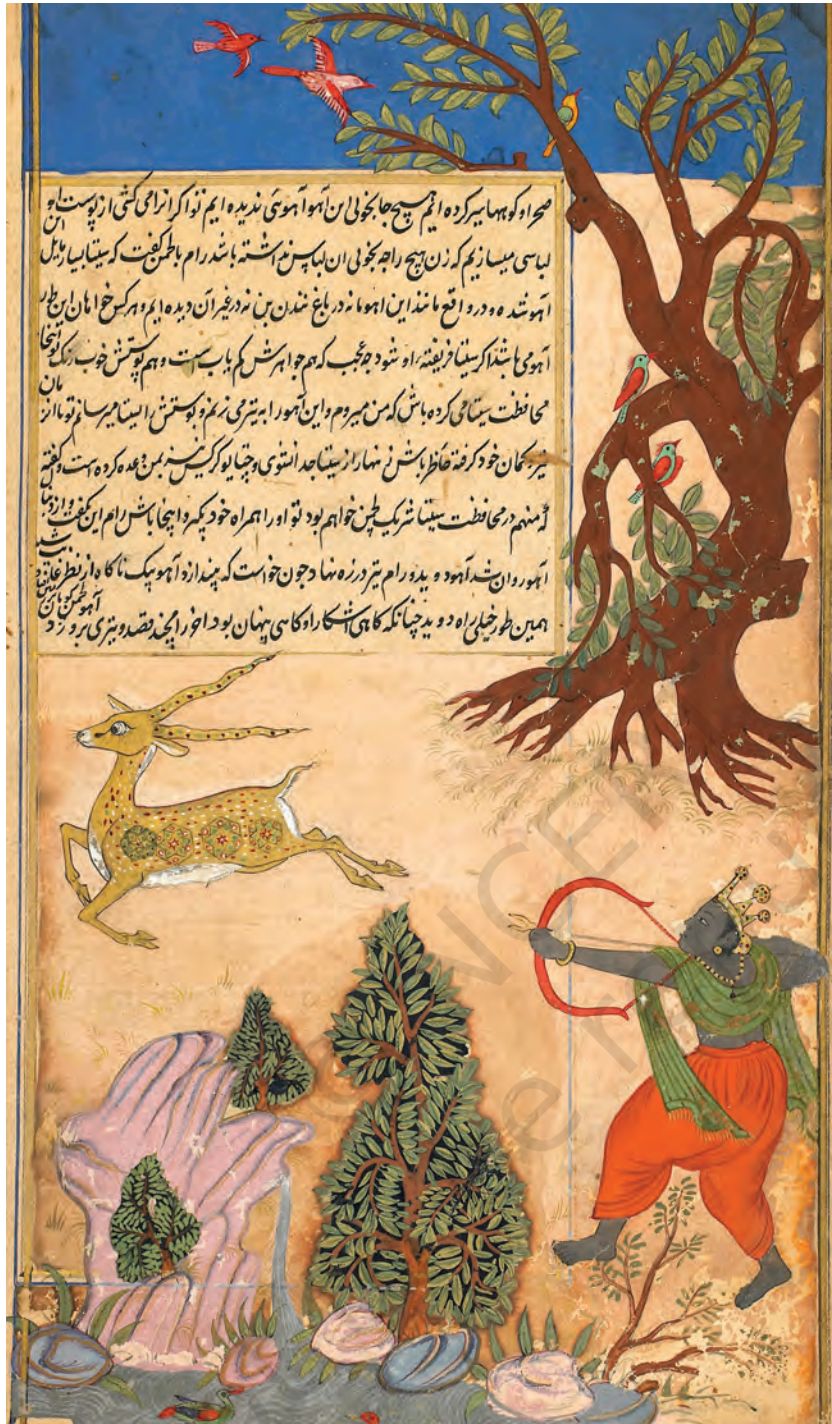 صحرا و کوهها سیر کرده ایم هیچ جا بخوبی این آهو آهوئی ندیده ایم تو اگر انرا می کشی از پوست او
لباسی میسازیم که زن هیچ راجه بخوبی ان لباس نداشته باشد رام با لچمن گفت که سیتا بسیار مایل این
آهو شده و در واقع مانند این اهو ما نه در باغ نندن بن نه در غیر آن دیده ایم و هر کس خواهان این طور
آهو می باشد اگر سیتا فریفته او شود چه عجب که هم جواهرش کم یاب است و هم پوستش خوب رنگ تو اینجا
محافظت سیتا می کرده باش که من میروم و این آهو را به تیر می زنم و پوستش را بسیتا میرسانم تو
تیر کمان خود گرفته حاظر باش زنهار از سیتا جدا نشوی و جتایو کرکس نیز بمن وعده کرده است و گفته
که منهم در محافظت سیتا شریک لچمن خواهم بود تو او را همراه خود بگیر و اینجا باش رام این گفت و از دنبال
آهو روان شد آهو دوید و رام تیر در زه نهاد چون خواست که بیندازد آهو یک ناگاه از نظر غایب شد
همین طور خیلی راه دوید چنانکه گاهی آشکارا و گاهی پنهان بود اخر رامچند قصد و تیری برو زد
NCE
be re